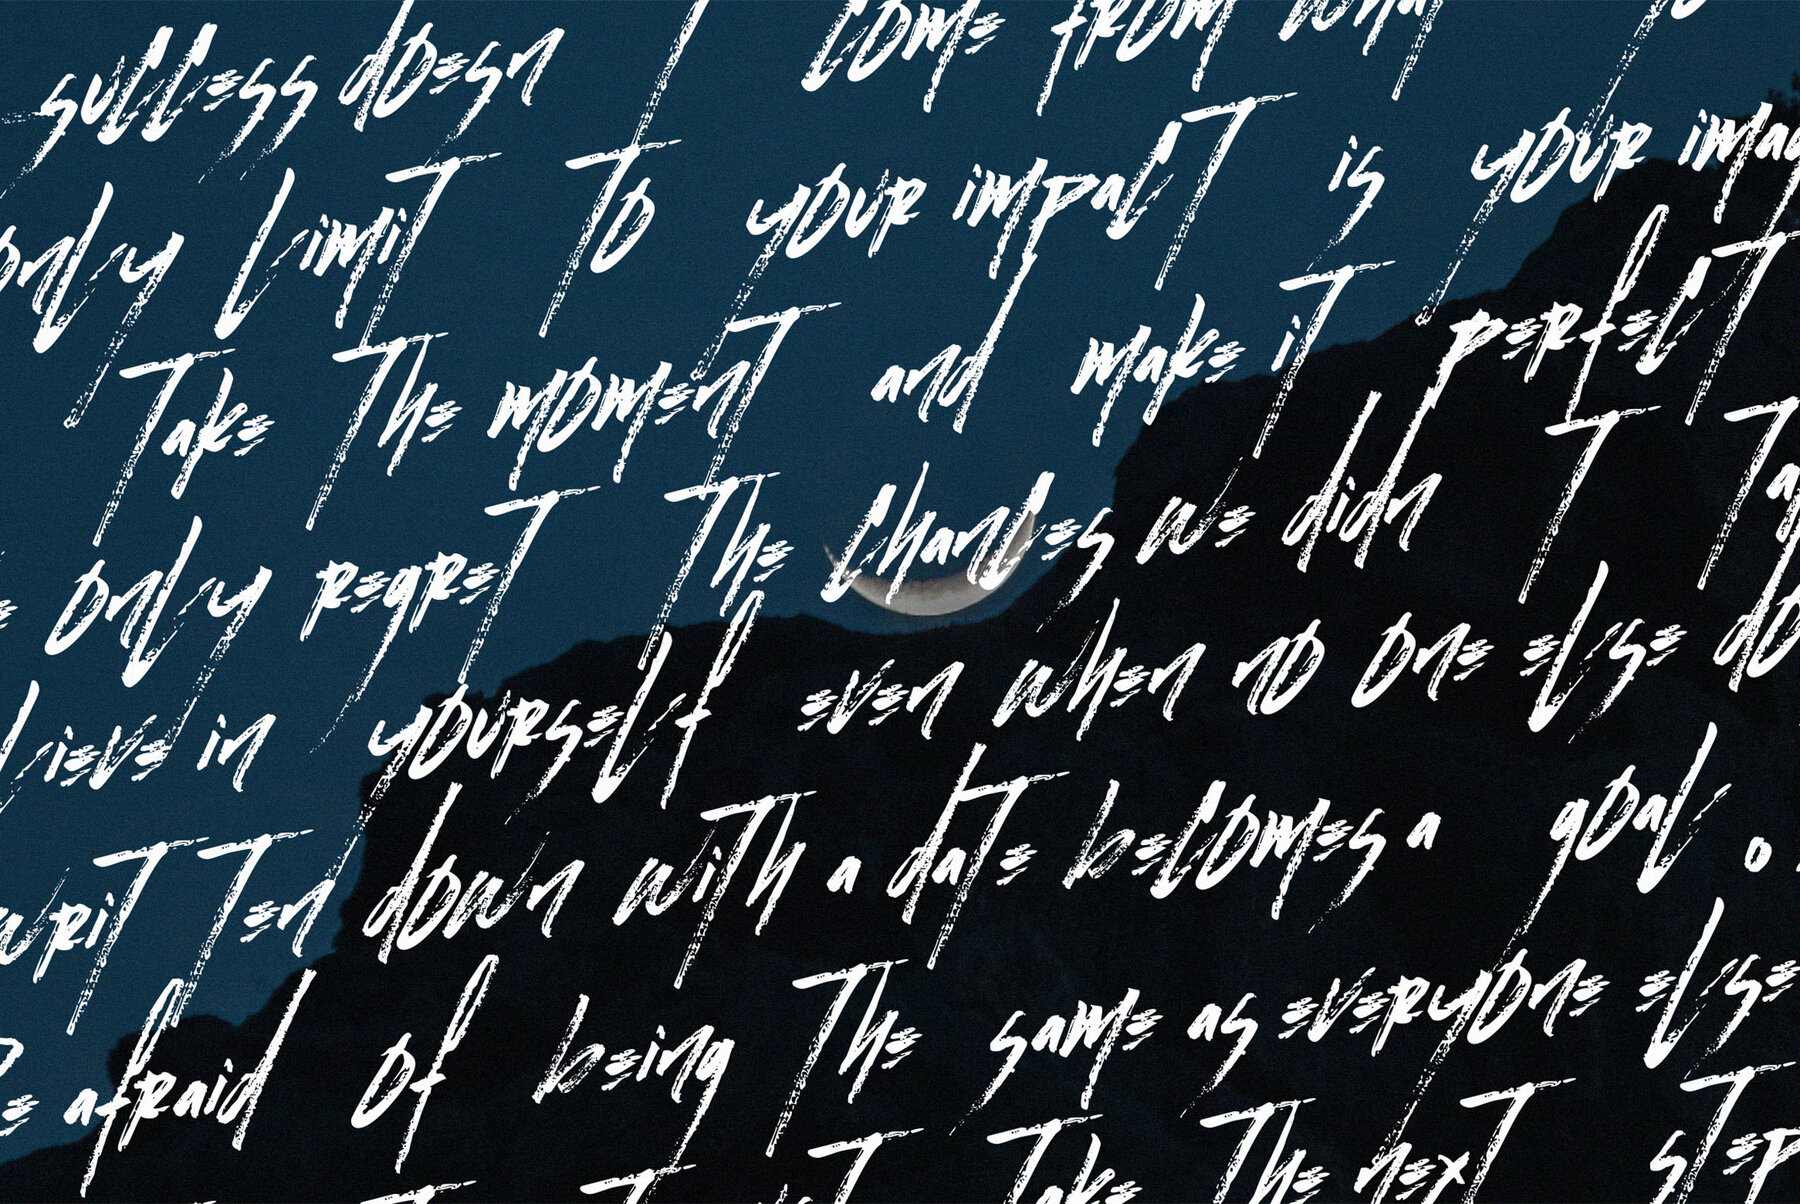 success doesn T come from what yo
only limiT To your impacT is your imag
Take The momenT and make iT perfecT
e only regreT The chances we didn T Ta
lieve in yourself even when no one else do
wriT Ten down wiTh a daTe becomes a goal .
e afraid of being The same as everyone else
Take The nexT sTep